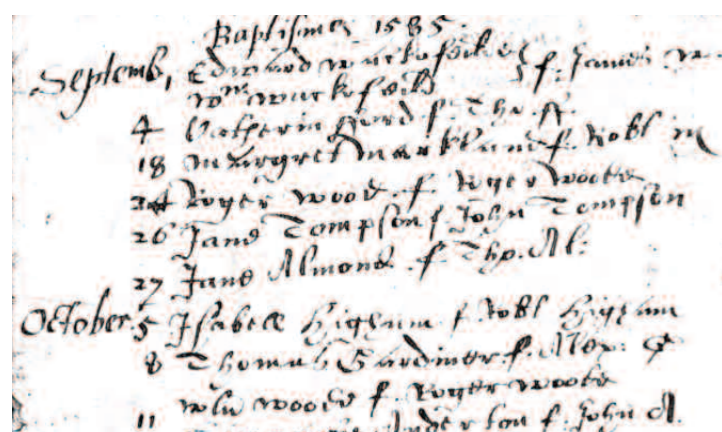 Baptismes 1585
Septemb, 1 Edward f. James W
Wm
4 Catherin fford f. Tho. ff.
18 Margret Markland f. Robt M
24 Roger Wood f. Roger Woode
26 Jane Tompson f. John Tompson
27 Jane Almond f. Tho. Al:
October 5 Isabell Higham f. Robt Higham
8 Thomas Gardiner f. Alex: G
Wm Woode f. Roger Woode
11 Anderton f. John A.